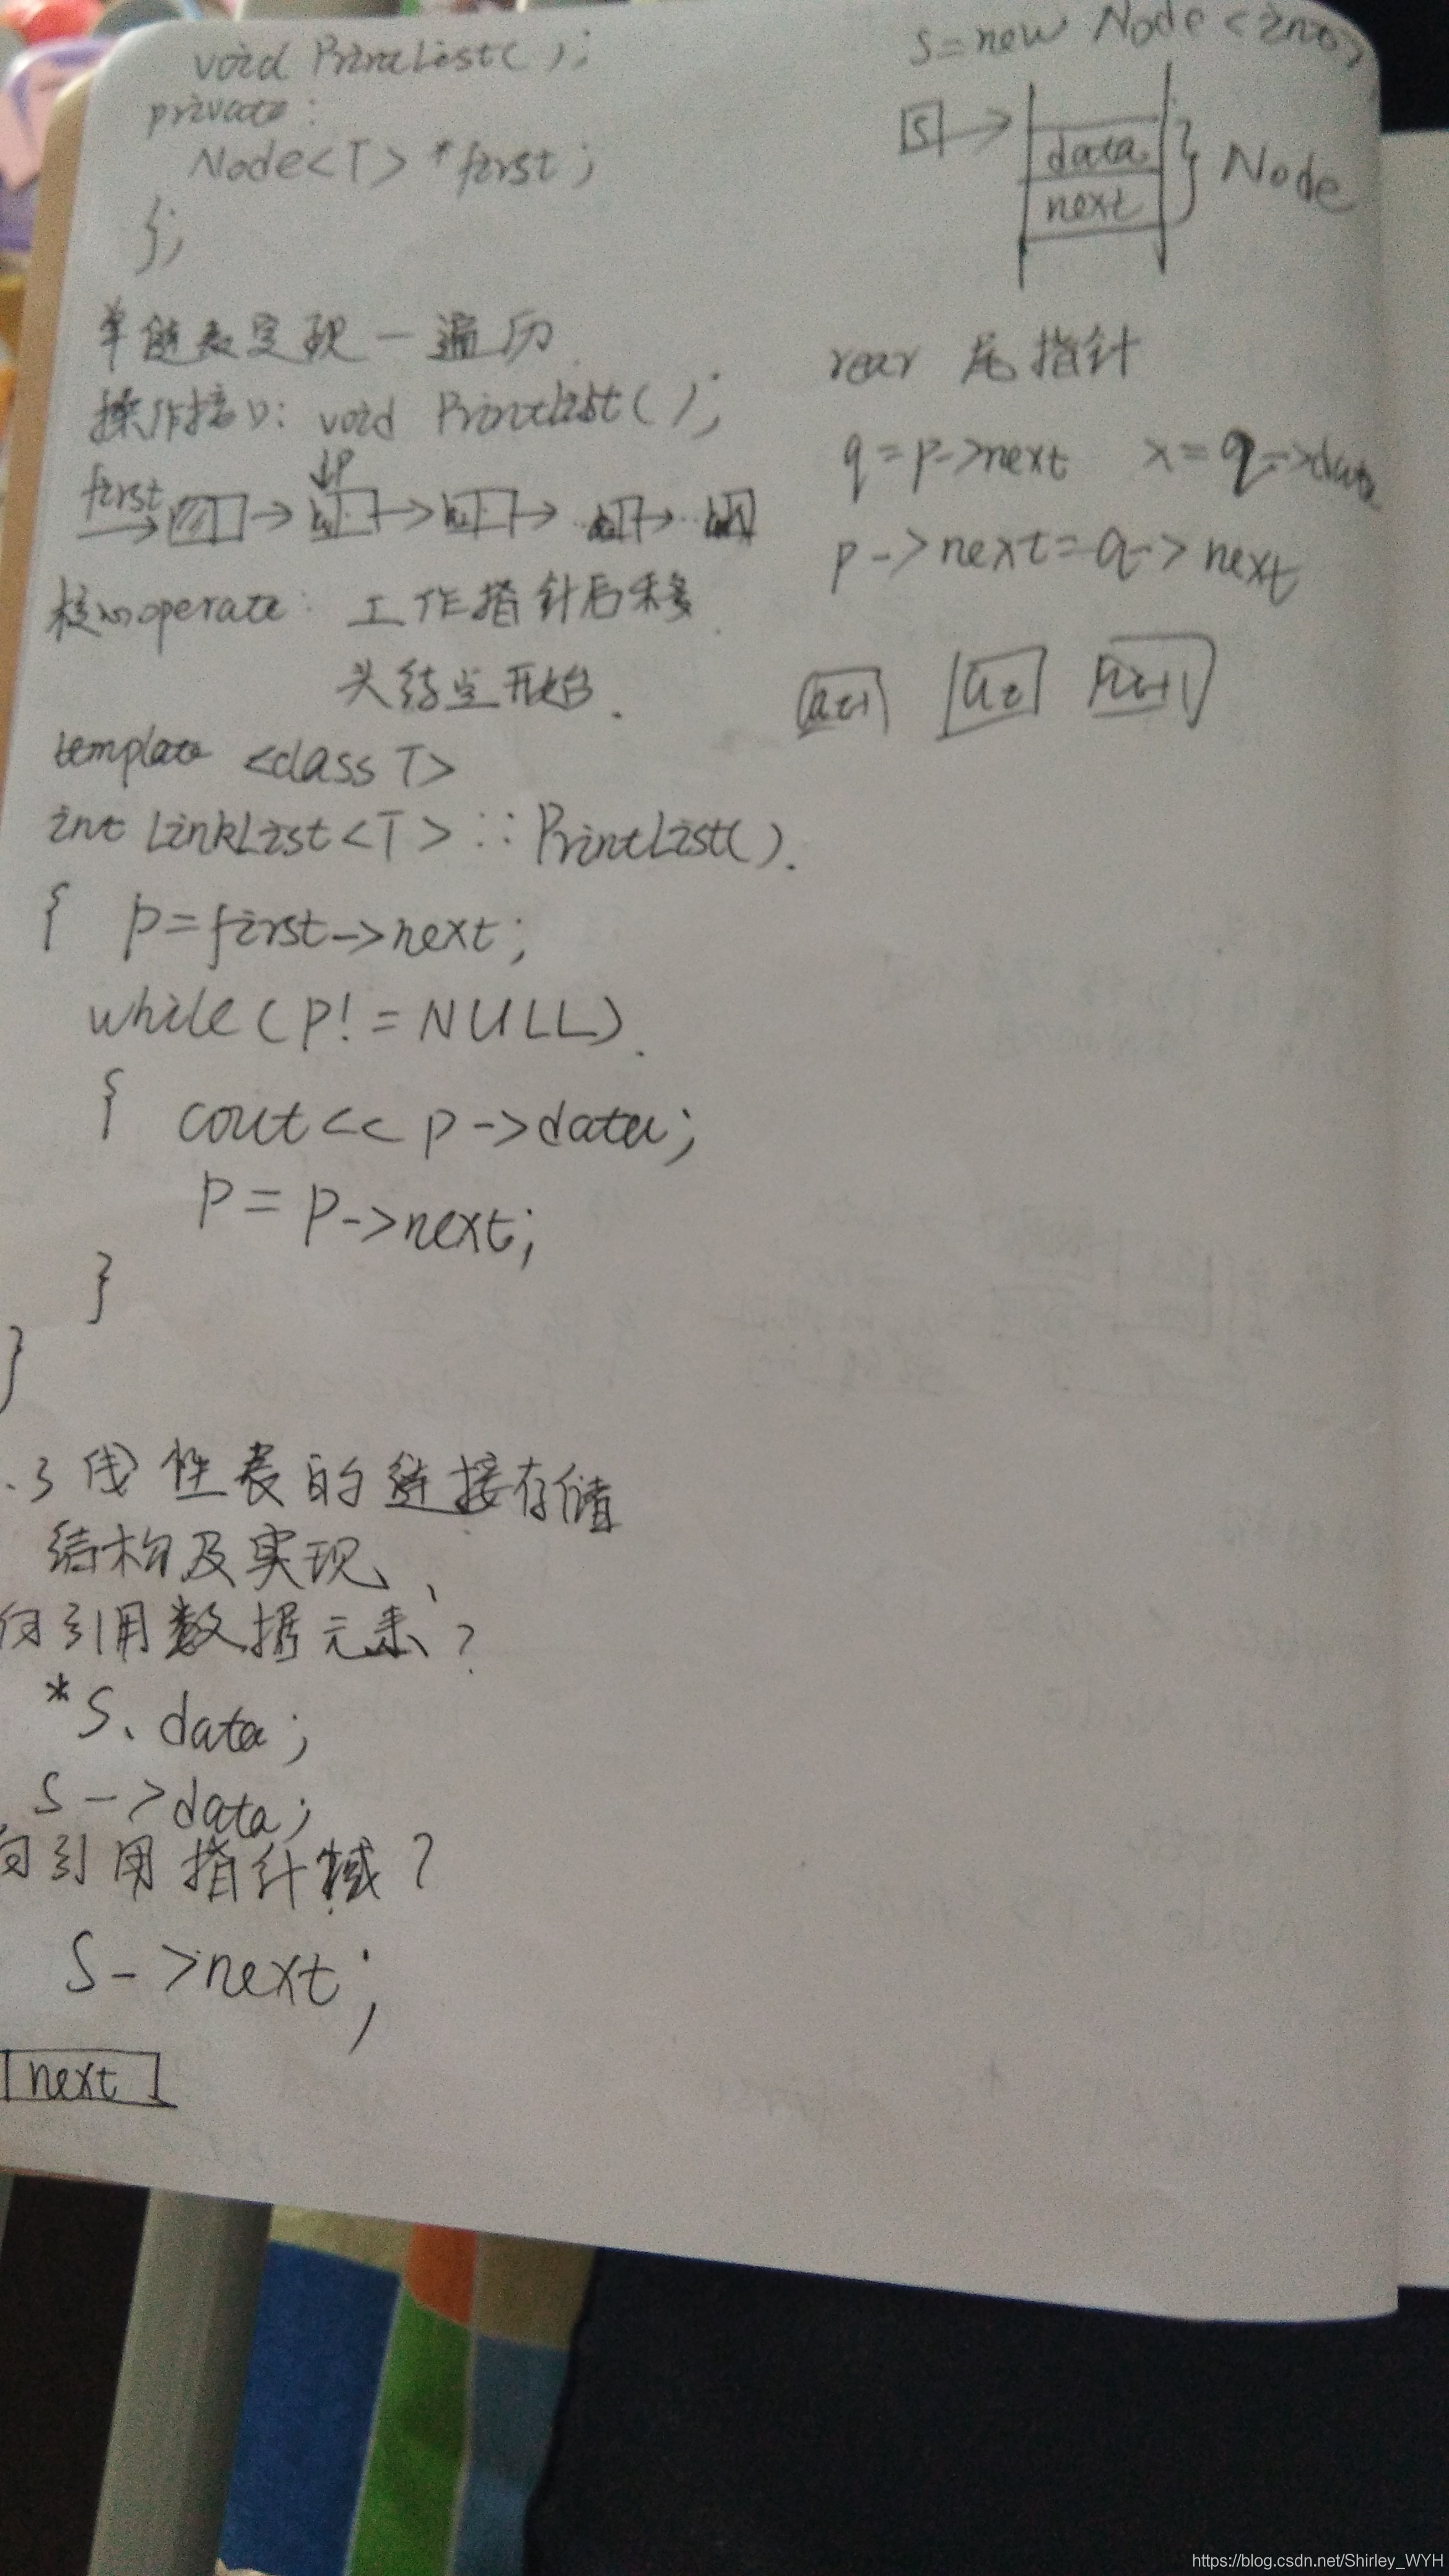 void PrintList( );
private:
Node<T> *first;
};
单链表实现一遍历
操作接口: void PrintList( );
first
P
核心operate: 工作指针后移.
头结点开始.
template <class T>
int LinkList<T>::PrintList().
{ p=first->next;
while(p!=NULL).
{ cout<< p->data;
p=p->next;
}
}
.3 线性表的链接存储
结构及实现、
何引用数据元素?
*s.data;
s->data;
何引用指针域?
s->next;
next
s=new Node<int>
S
data
next
Node
rear 尾指针
q=p->next x=q->data
p->next=q->next
https://blog.csdn.net/Shirley_WYH